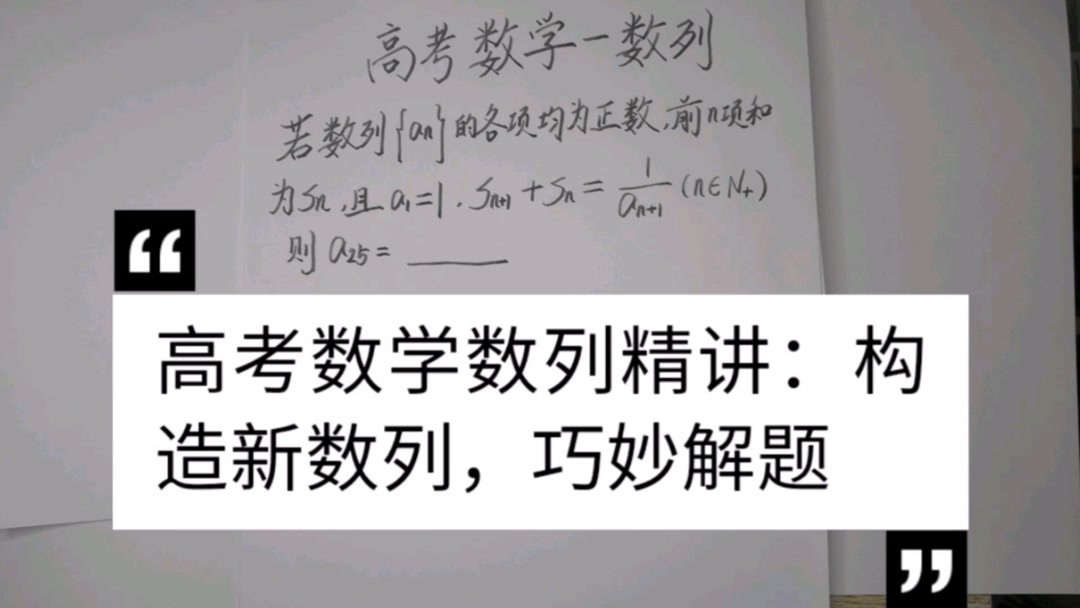 高考数学一数列
若数列{an}的各项均为正数,前n项和
为Sn,且a₁=1.Sn+1+Sn=1/an+1(n∈N+)
则a25=____
“
高考数学数列精讲：构
造新数列，巧妙解题
”